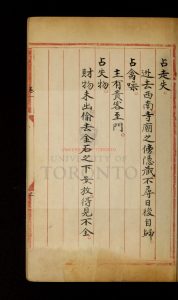 占走失
近去西南寺廟之傍隱藏不尋日後自歸
占禽噪
主有貴客至門
占失物
財物未出偷去金石之下安放得見不全
UNIVERSITY OF
TORONTO